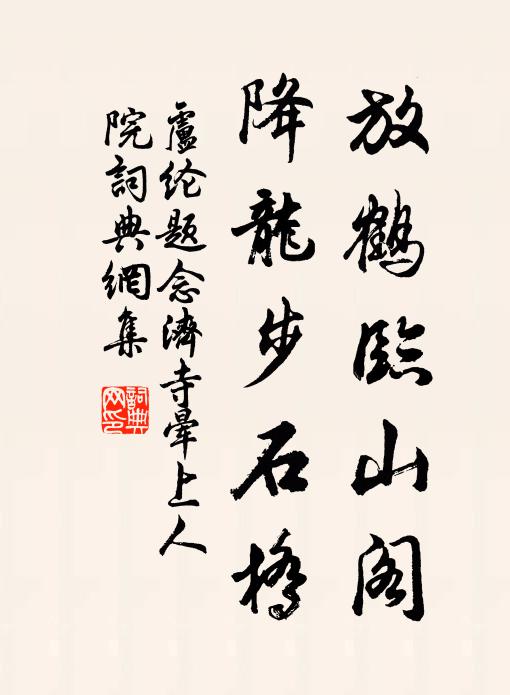 放鹤臨山阁
降龍步石橋
盧纶题念濟寺暈上人
院詞典網集
詞典
网印